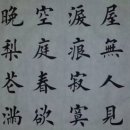 屋無人見
淚痕寂寞
空庭春欲
晚梨花滿